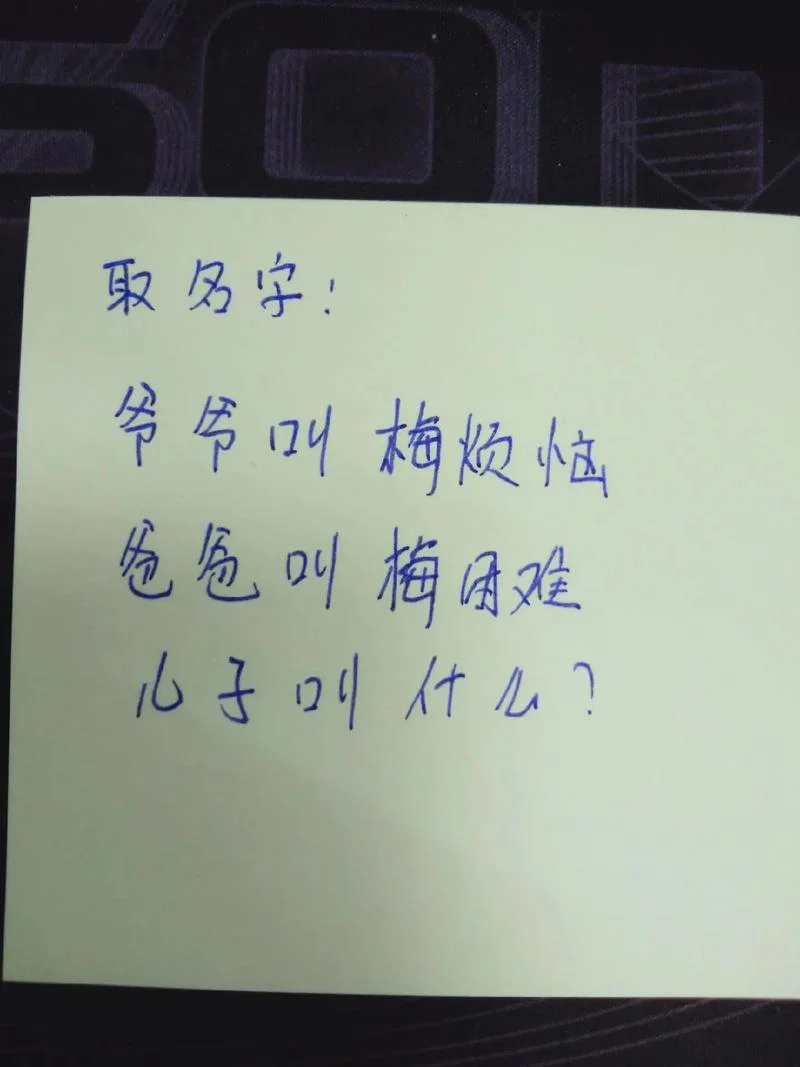 取名字:
爷爷叫 梅烦恼
爸爸叫 梅困难
儿子叫 什么?